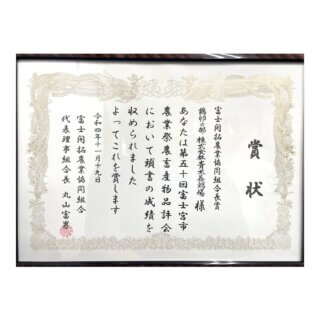 賞状
富士開拓農業協同組合長賞
鶏卵の部 株式会社青木養鶏場 様
あなたは第五十回富士宮市
農業祭農畜産物品評会
において頭書の成績を
収められました
よってこれを賞します
令和四年十一月十九日
富士開拓農業協同組合
代表理事組合長 丸山富男